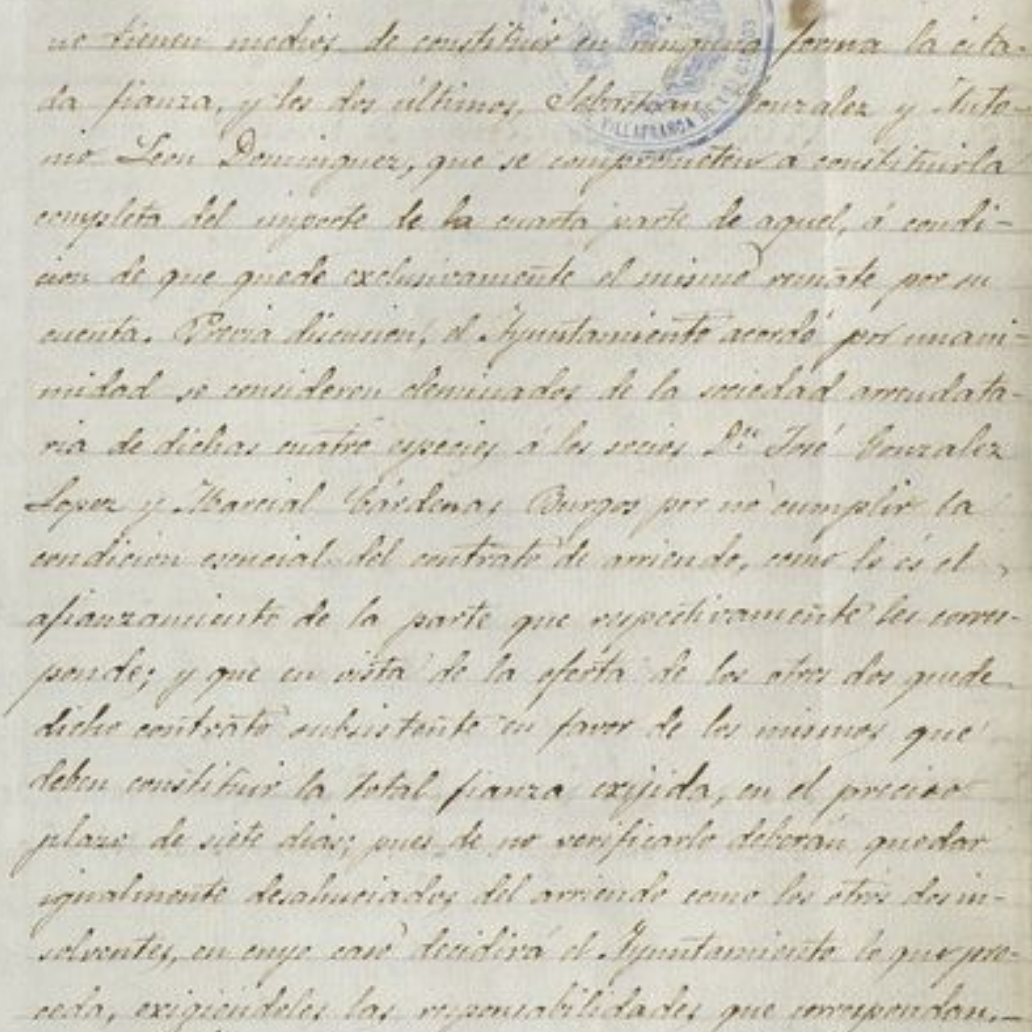 no tienen medios de constituir en ninguna forma la cita-
da fianza, y los dos últimos, Sebastian Gonzalez y Anto-
nio Leon Dominguez, que se comprometen á constituirla
completa del importe de la cuarta parte de aquel, á condi-
cion de que quede exclusivamente el mismo remate por su
cuenta. Previa discusion, el Ayuntamiento acordó por unani-
midad se consideren eliminados de la sociedad arrendata-
ria de dichas cuatro especies á los socios Dn José Gonzalez
Lopez y Marcial Cárdenas Burgos por no cumplir la
condicion esencial del contrato de arriendo, como lo és el
afianzamiento de la parte que respectivamente les corres-
ponde; y que en vista de la oferta de los otros dos quede
dicho contrato subsistente en favor de los mismos que
deben constituir la total fianza exijida, en el preciso
plazo de siete dias; pues de no verificarlo deberán quedar
igualmente desahuciados del arriendo como los otros dos in-
solventes, en cuyo caso decidirá el Ayuntamiento lo que pro-
ceda, exigiéndoles las responsabilidades que correspondan.—
VILLAFRANCA DE